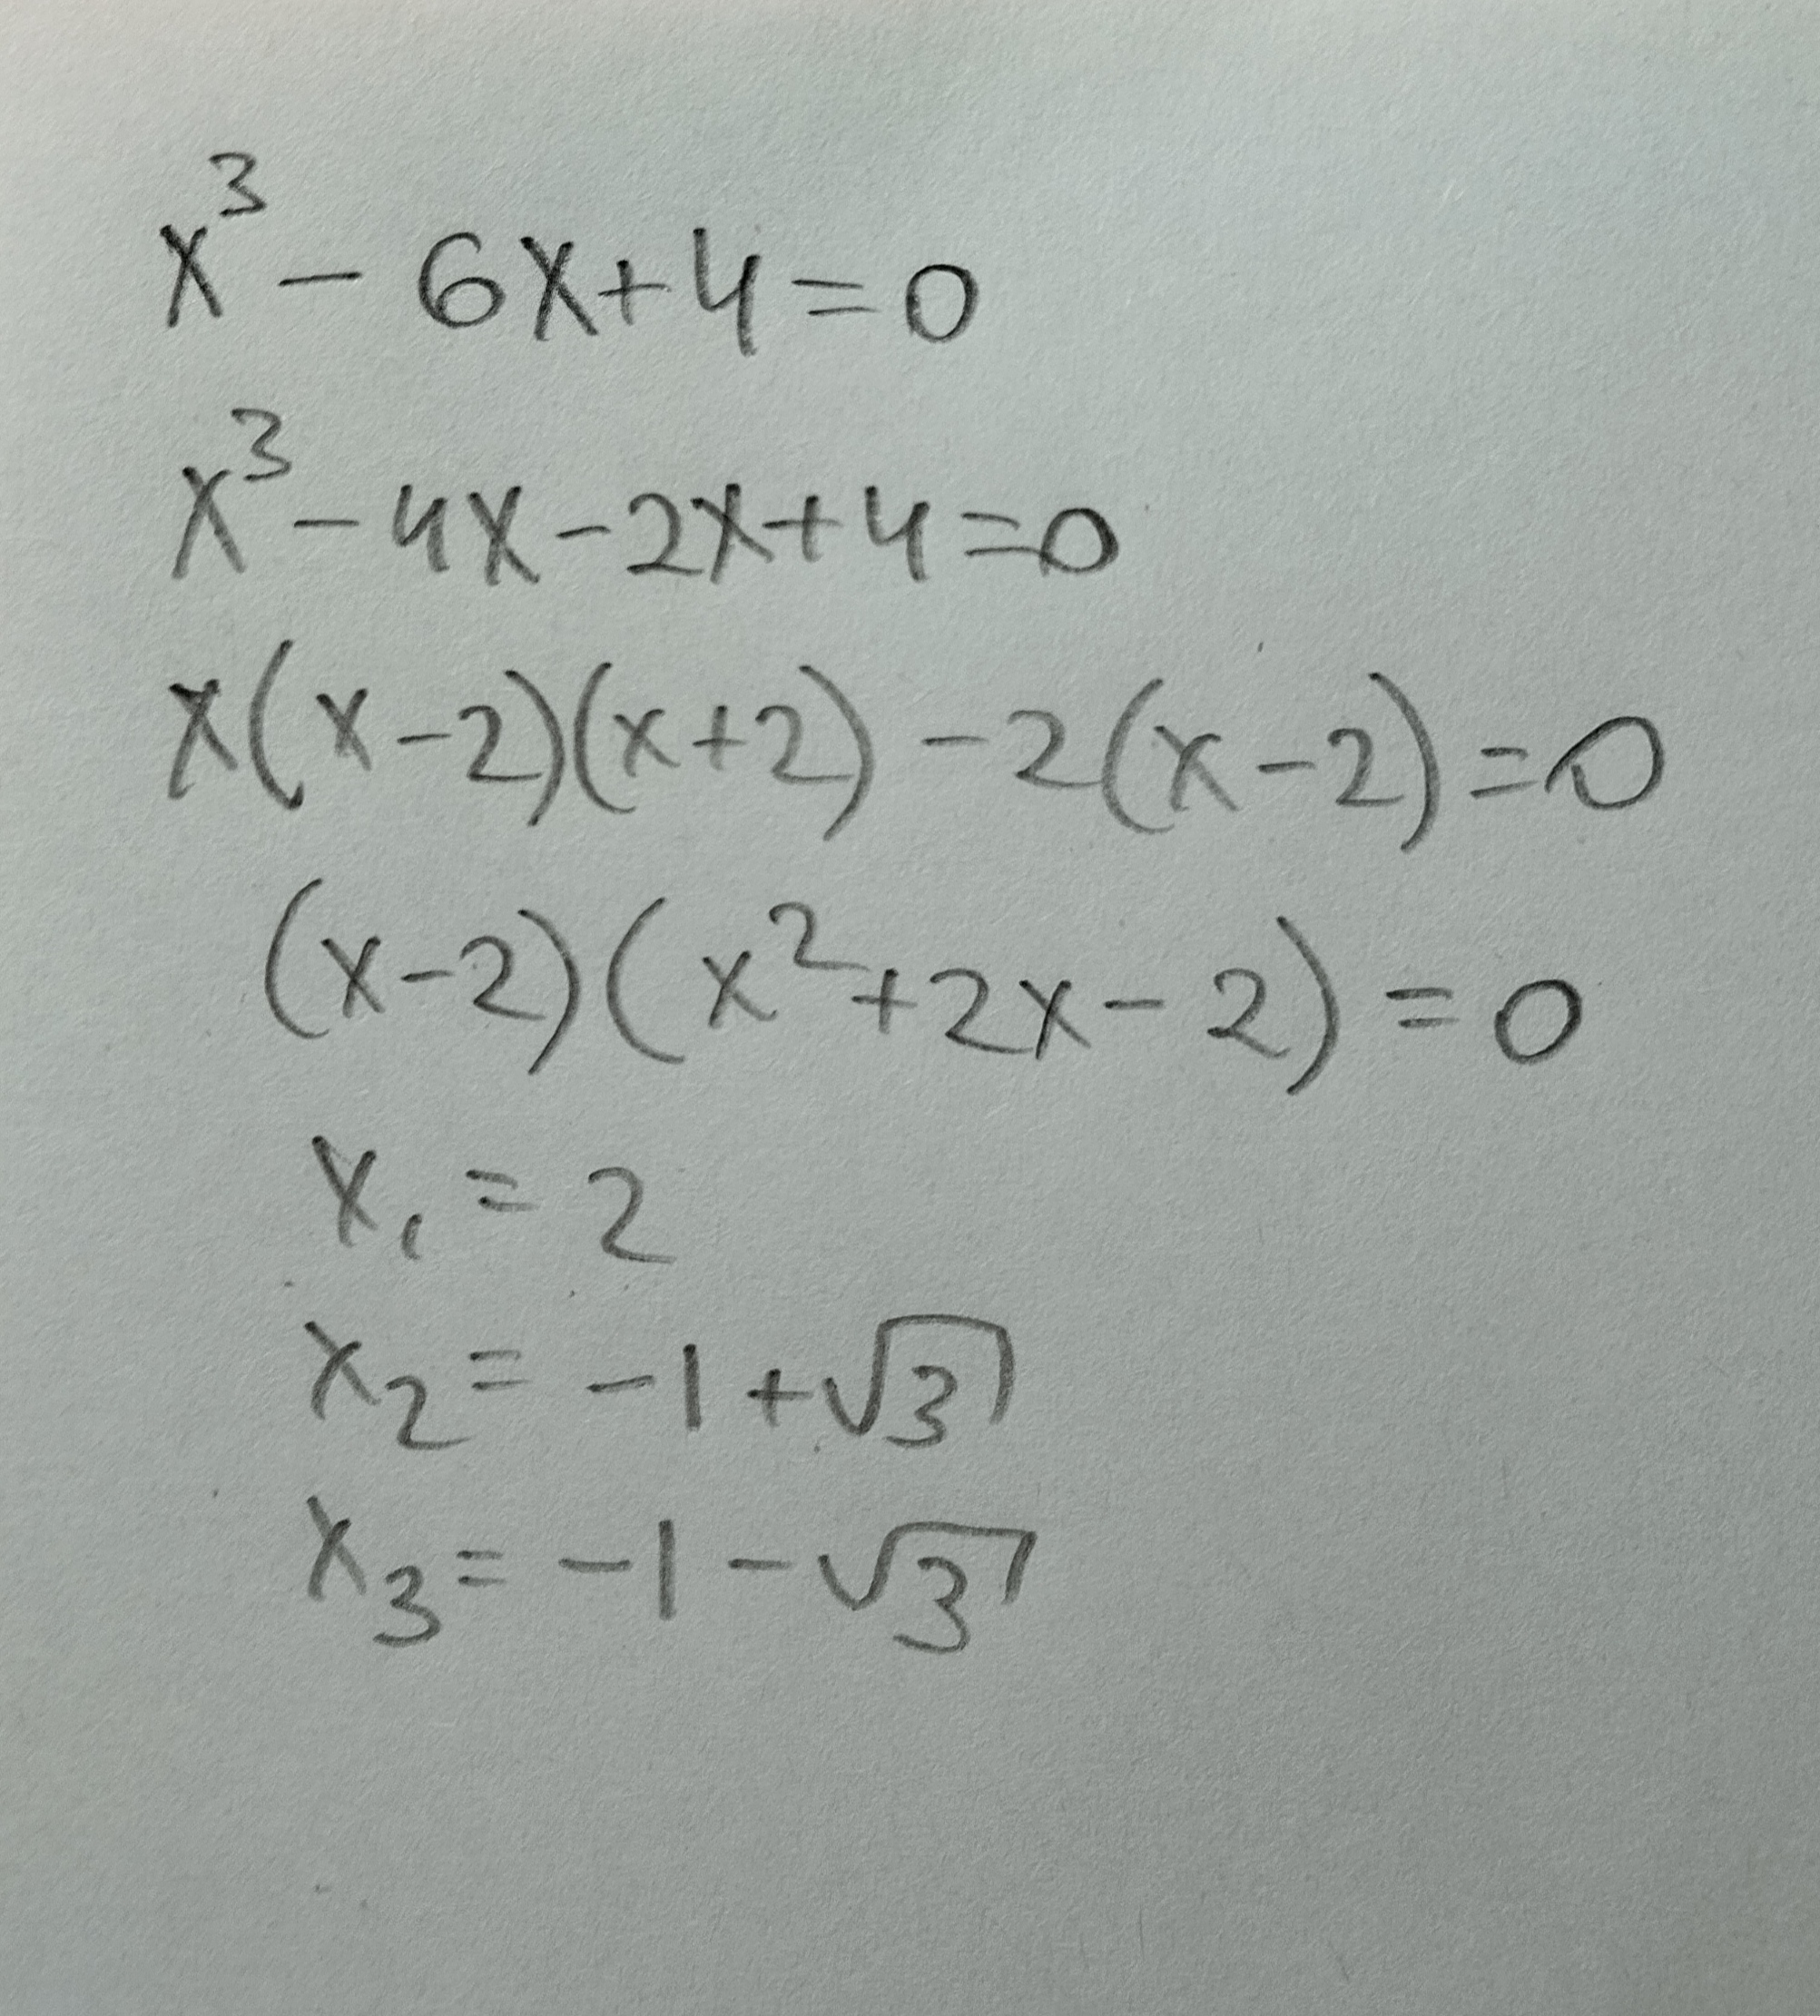 x³ - 6x + 4 = 0
x³ - 4x - 2x + 4 = 0
x(x-2)(x+2) - 2(x-2) = 0
(x-2)(x²+2x-2) = 0
x₁ = 2
x₂ = -1 + √3
x₃ = -1 - √3